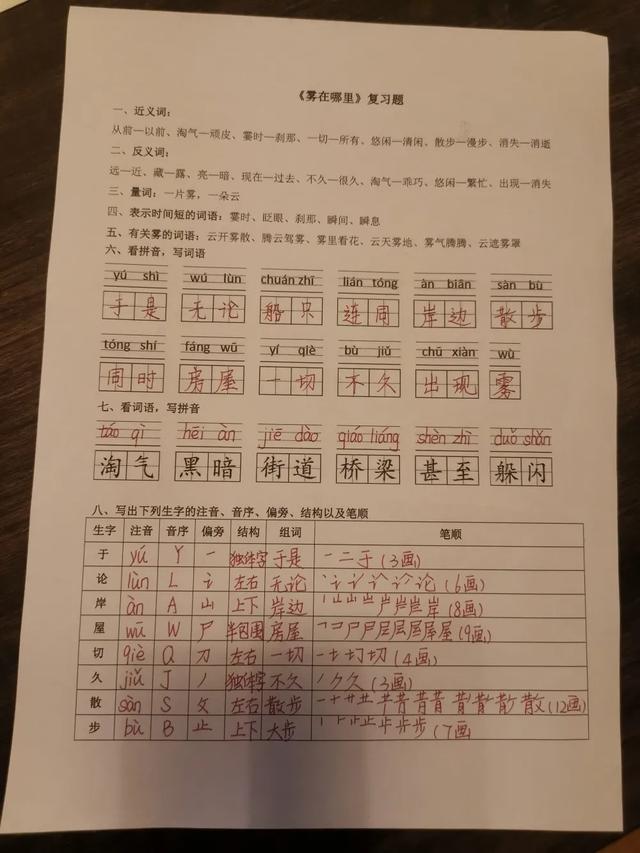 《雾在哪里》复习题
一、近义词：
从前—以前、淘气—顽皮、霎时—刹那、一切—所有、悠闲—清闲、散步—漫步、消失—消逝
二、反义词：
远—近、藏—露、亮—暗、现在—过去、不久—很久、淘气—乖巧、悠闲—繁忙、出现—消失
三、量词：一片雾，一朵云
四、表示时间短的词语：霎时、眨眼、刹那、瞬间、瞬息
五、有关雾的词语：云开雾散、腾云驾雾、雾里看花、云天雾地、雾气腾腾、云遮雾罩
六、看拼音，写词语
yú shì wú lùn chuán zhī lián tóng àn biān sàn bù
于是 无论 船只 连同 岸边 散步
tóng shí fáng wū yí qiè bù jiǔ chū xiàn wù
同时 房屋 一切 不久 出现 雾
七、看词语，写拼音
táo qì hēi àn jiē dào qiáo liáng shèn zhì duǒ shǎn
淘气 黑暗 街道 桥梁 甚至 躲闪
八、写出下列生字的注音、音序、偏旁、结构以及笔顺
生字 注音 音序 偏旁 结构 组词 笔顺
于 yú Y 一 独体字 于是 一 二 于 (3画)
论 lùn L 讠 左右 无论 (6画)
岸 àn A 山 上下 岸边 (8画)
屋 wū W 尸 半包围 房屋 (9画)
切 qiè Q 刀 左右 一切 (4画)
久 jiǔ J 丿 独体字 不久 丿 ク 久 (3画)
散 sàn S 攵 左右 散步 (12画)
步 bù B 止 上下 大步 (7画